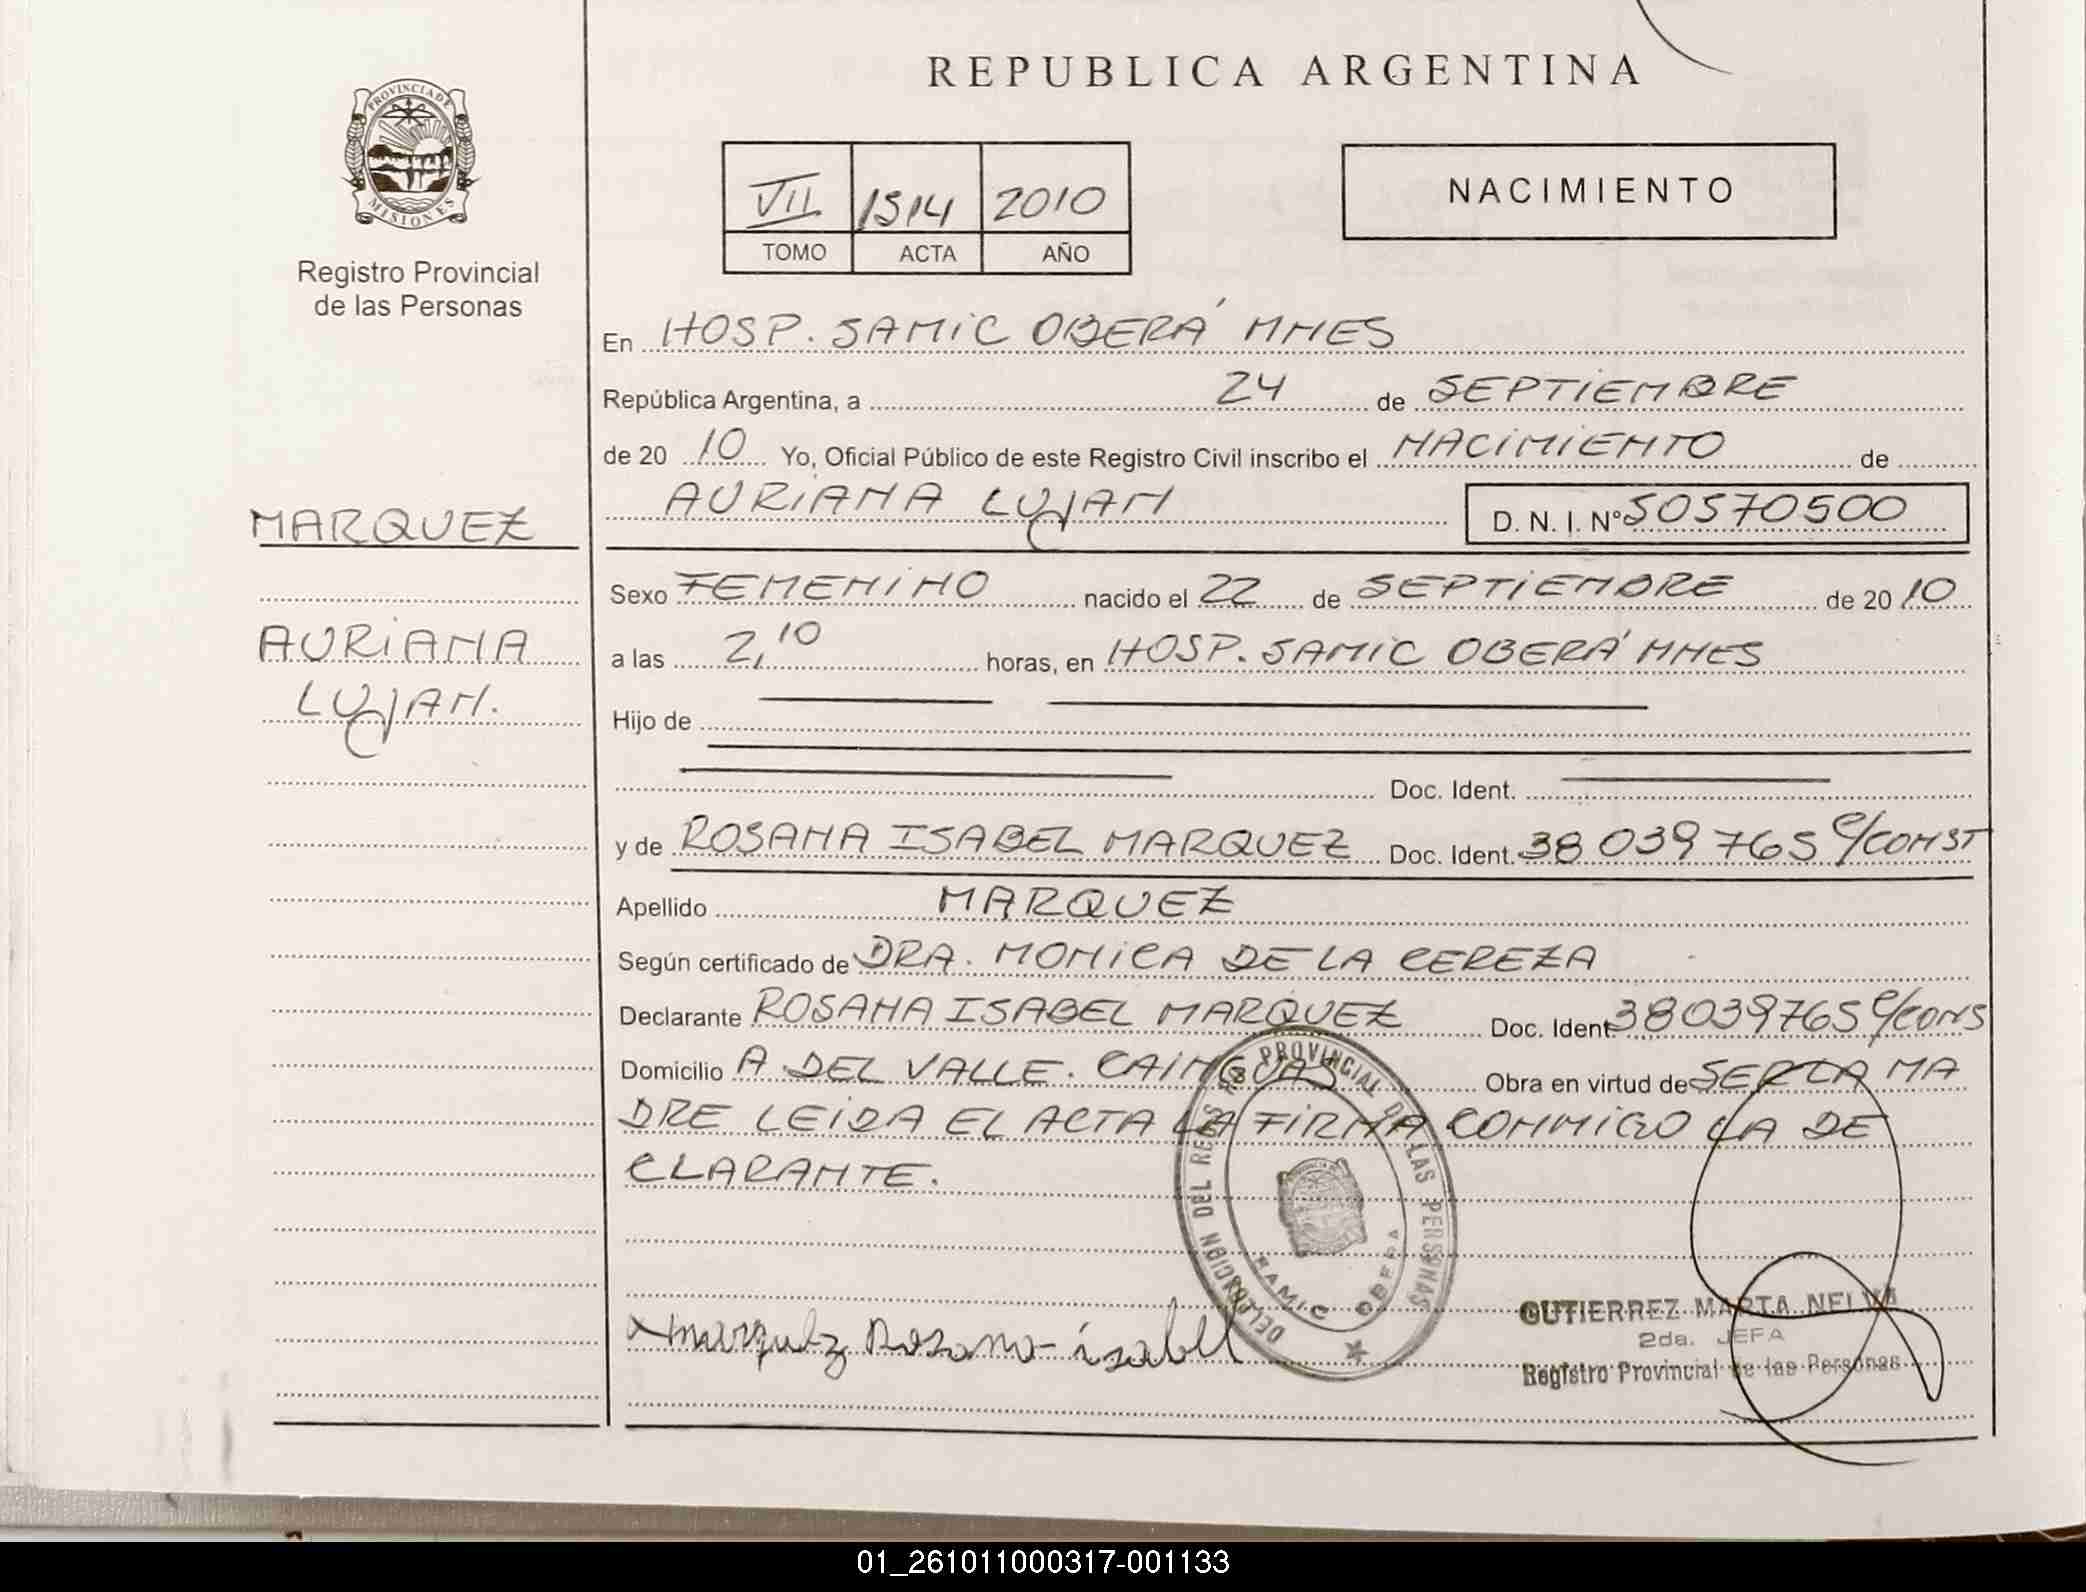 REPUBLICA ARGENTINA
PROVINCIA DE MISIONES
Registro Provincial
de las Personas
VII 1514 2010
TOMO ACTA AÑO
NACIMIENTO
En HOSP. SAMIC OBERÁ MNES
República Argentina, a 24 de SEPTIEMBRE
de 20 10 Yo, Oficial Público de este Registro Civil inscribo el NACIMIENTO de
AURIANA LUJAN D. N. I. Nº 50570500
MARQUEZ
AURIANA
LUJAN.
Sexo FEMENINO nacido el 22 de SEPTIEMBRE de 20 10
a las 2,10 horas, en HOSP. SAMIC OBERÁ MNES
Hijo de
Doc. Ident.
y de ROSANA ISABEL MARQUEZ Doc. Ident. 38 039 765 C/CONST
Apellido MARQUEZ
Según certificado de DRA. MONICA DE LA CEREZA
Declarante ROSANA ISABEL MARQUEZ Doc. Ident. 38039765 C/CONS
Domicilio A DEL VALLE. CAINGUAS Obra en virtud de SER LA MA
DRE LEIDA EL ACTA LA FIRMA CONMIGO LA DE
CLARANTE.
DELEGACION DEL REGISTRO PROVINCIAL DE LAS PERSONAS
SAMIC OBERA
Marquez Rosana isabel
GUTIERREZ MARTA NELVA
2da. JEFA
Registro Provincial de las Personas
01_261011000317-001133